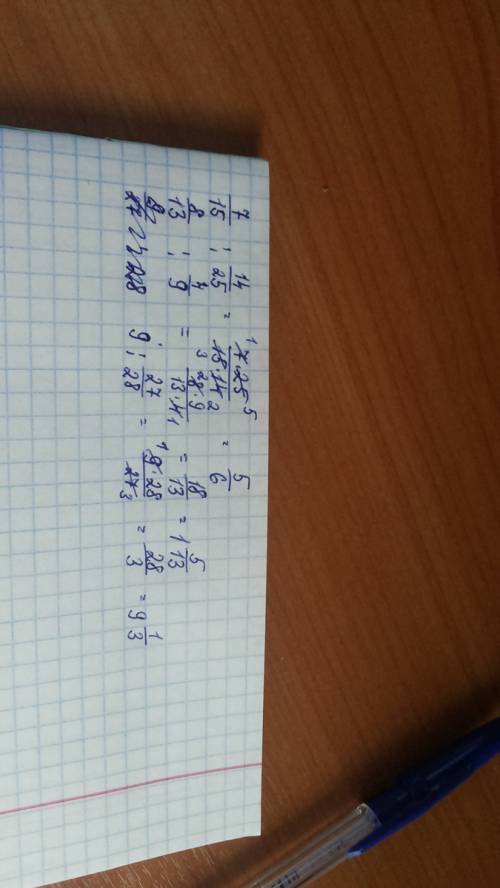 7/15 : 14/25 = 7·25/15·14 = 5/6
8/13 : 4/9 = 8·9/13·4 = 18/13 = 1 5/13
9 : 27/28 = 9·28/27 = 28/3 = 9 1/3